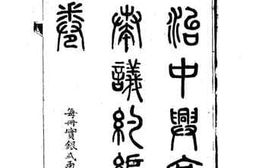 治中興京
奏議約編
卷
每冊實銀弍